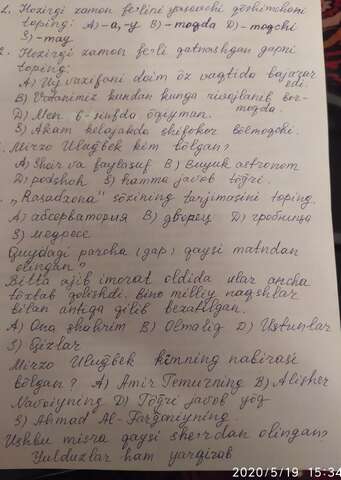 1. Hozirgi zamon fe'lini yasovchi qo'shimchani
toping: A) -a, -y B) -moqda D) -moqchi
S) -may
2. Hozirgi zamon fe'li qatnashgan gapni
toping:
A) Uy vazifani doim o'z vaqtida bajarar
edi.
B) Vatanimiz kundan kunga rivojlanib bor-
moqda.
D) Men 6-sinfda o'qiyman.
S) Akam kelajakda shifokor bo'lmoqchi.
Mirzo Ulug'bek kim bo'lgan?
A) Shoir va faylasuf B) Buyuk astronom
D) podshoh S) hamma javob to'g'ri.
"Rasadxona" so'zining tarjimasini toping.
A) абсерватория B) дворец D) гробница
S) медресе
Quyidagi parcha (gap) qaysi matndan
olingan?
Bitta ajib imorat oldida ular ancha
to'xtab qolishdi. Bino milliy naqshlar
bilan antiqa qilib bezatilgan.
A) Ona shahrim B) Olmaliq D) Ustunlar
S) Egizlar
Mirzo Ulug'bek kimning nabirasi
bo'lgan? A) Amir Temurning B) Alisher
Navoiyning D) To'g'ri javob yo'q
S) Ahmad Al-Farg'oniyning
Ushbu misra qaysi she'rdan olingan?
Yulduzlar ham yarqirab
2020/5/19 15:34